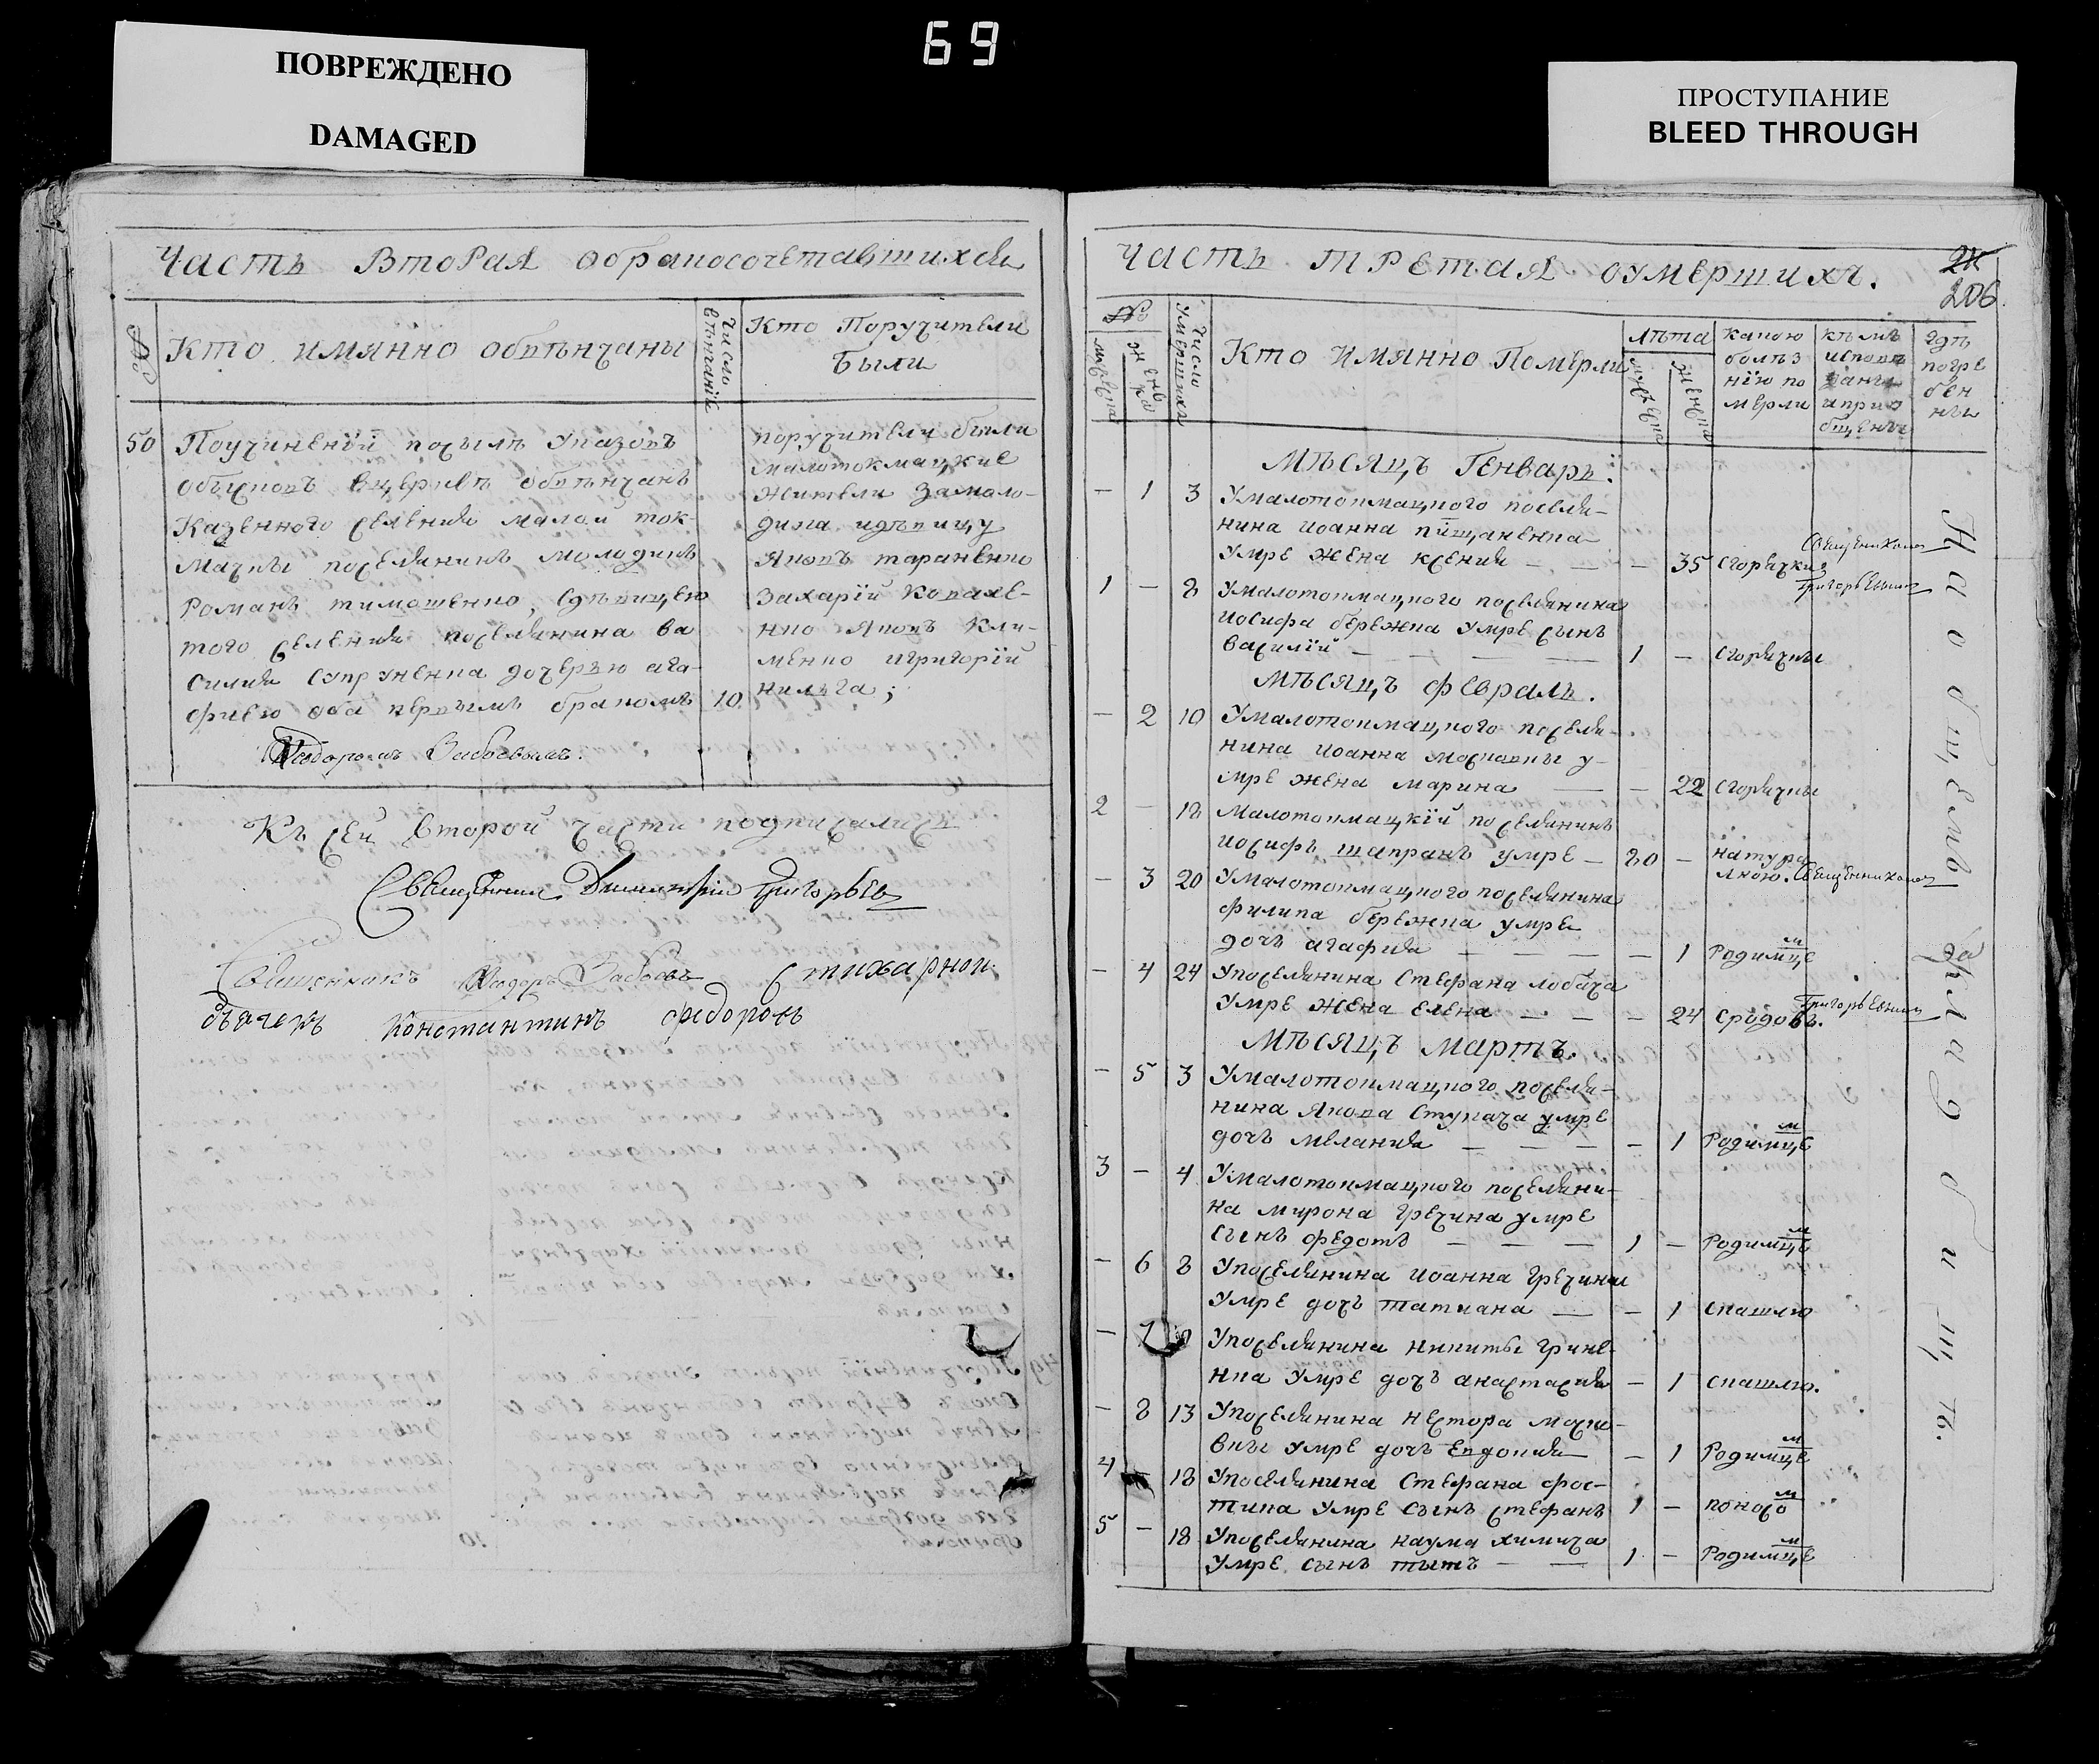 ПОВРЕЖДЕНО
DAMAGED
69
ПРОСТУПАНИЕ
BLEED THROUGH
Часть Вторая обракосочетавшихся
№
Кто имянно обвѣнчаны
Число вѣнчанiй
Кто Поручители
были
50
Поучиненiй посылѣ указовъ
обысковъ вцерквѣ обвѣнчанъ
Казенного селения малой ток-
мачки поселянинъ молодикъ
Романъ тимошенко, Сдѣвицею
того селения поселянина ва
силия Супруненка дочерью ага-
фиею оба первымъ бракомъ
10
Федоромъ
поручители были
малотокмацкие
жители замоло-
дика идѣвицу
Яковъ тараненко
Захарiй Ковале-
нко Яковъ Кли-
менко игригорiй
Къ сей второй части подписались
Священникъ Димитрiй Григорьевъ
Священникъ Федоръ
стихарной
дьячекъ Константинъ федоровъ
Часть третая оумершихъ.
206
№
мужеска
женска
Число умершихъ
Кто имянно Померли
лѣта
мужеска
женска
какою
болѣз
нiю по
мерли
кѣмъ
исповѣ
даны
иприо
бщены
гдѣ
погре
бен
ны
Мѣсяцъ Генварь:
– 1 3 Умалотокмацкого поселя-
нина иоанна пiщаненка
умре жена ксения — — 35 Сгорячки
Священникомъ
Григорьевымъ
1 – 8 Умалотокмацкого поселянина
иосифа бережка умре сынъ
василiй — 1 – Сгорячки
Мѣсяцъ февраль.
– 2 10 Умалотокмацкого поселя-
нина иоанна московки у-
мре жена марина — – 22 Сгорячки
2 – 18 Малотокмацкiй поселянинъ
иосифъ шапранъ умре – 80 – натура
лною. Священникомъ
– 3 20 Умалотокмацкого поселянина
филипа бережка умре
дочь агафия — – 1 Родимце м
– 4 24 Упоселянина Стефана лобача
умре жена елена — – 24 Сродовъ.
Григорьевымъ
Мѣсяцъ мартъ.
– 5 3 Умалотокмацкого поселя-
нина якова Ступача умре
дочь мелания — – 1 Родимце м
3 – 4 Умалотокмацкого поселяни-
на мирона гречина умре
сынъ федотъ — 1 – Родимце м
– 6 8 Упоселянина иоанна гречини
умре дочь татиана — – 1 скашлю
– 7 Упоселянина никиты грине-
нка умре дочь анастасия – 1 скашлю.
– 8 13 Упоселянина нестора моско-
вки умре дочь Евдокия – 1 Родимце м
4 – 18 Упоселянина Стефана фос-
тика умре сынъ стефанъ 1 – поносо м
5 – 18 Упоселянина наума химича
умре сынъ титъ — 1 – Родимце м
На общемъ кладбищѣ.